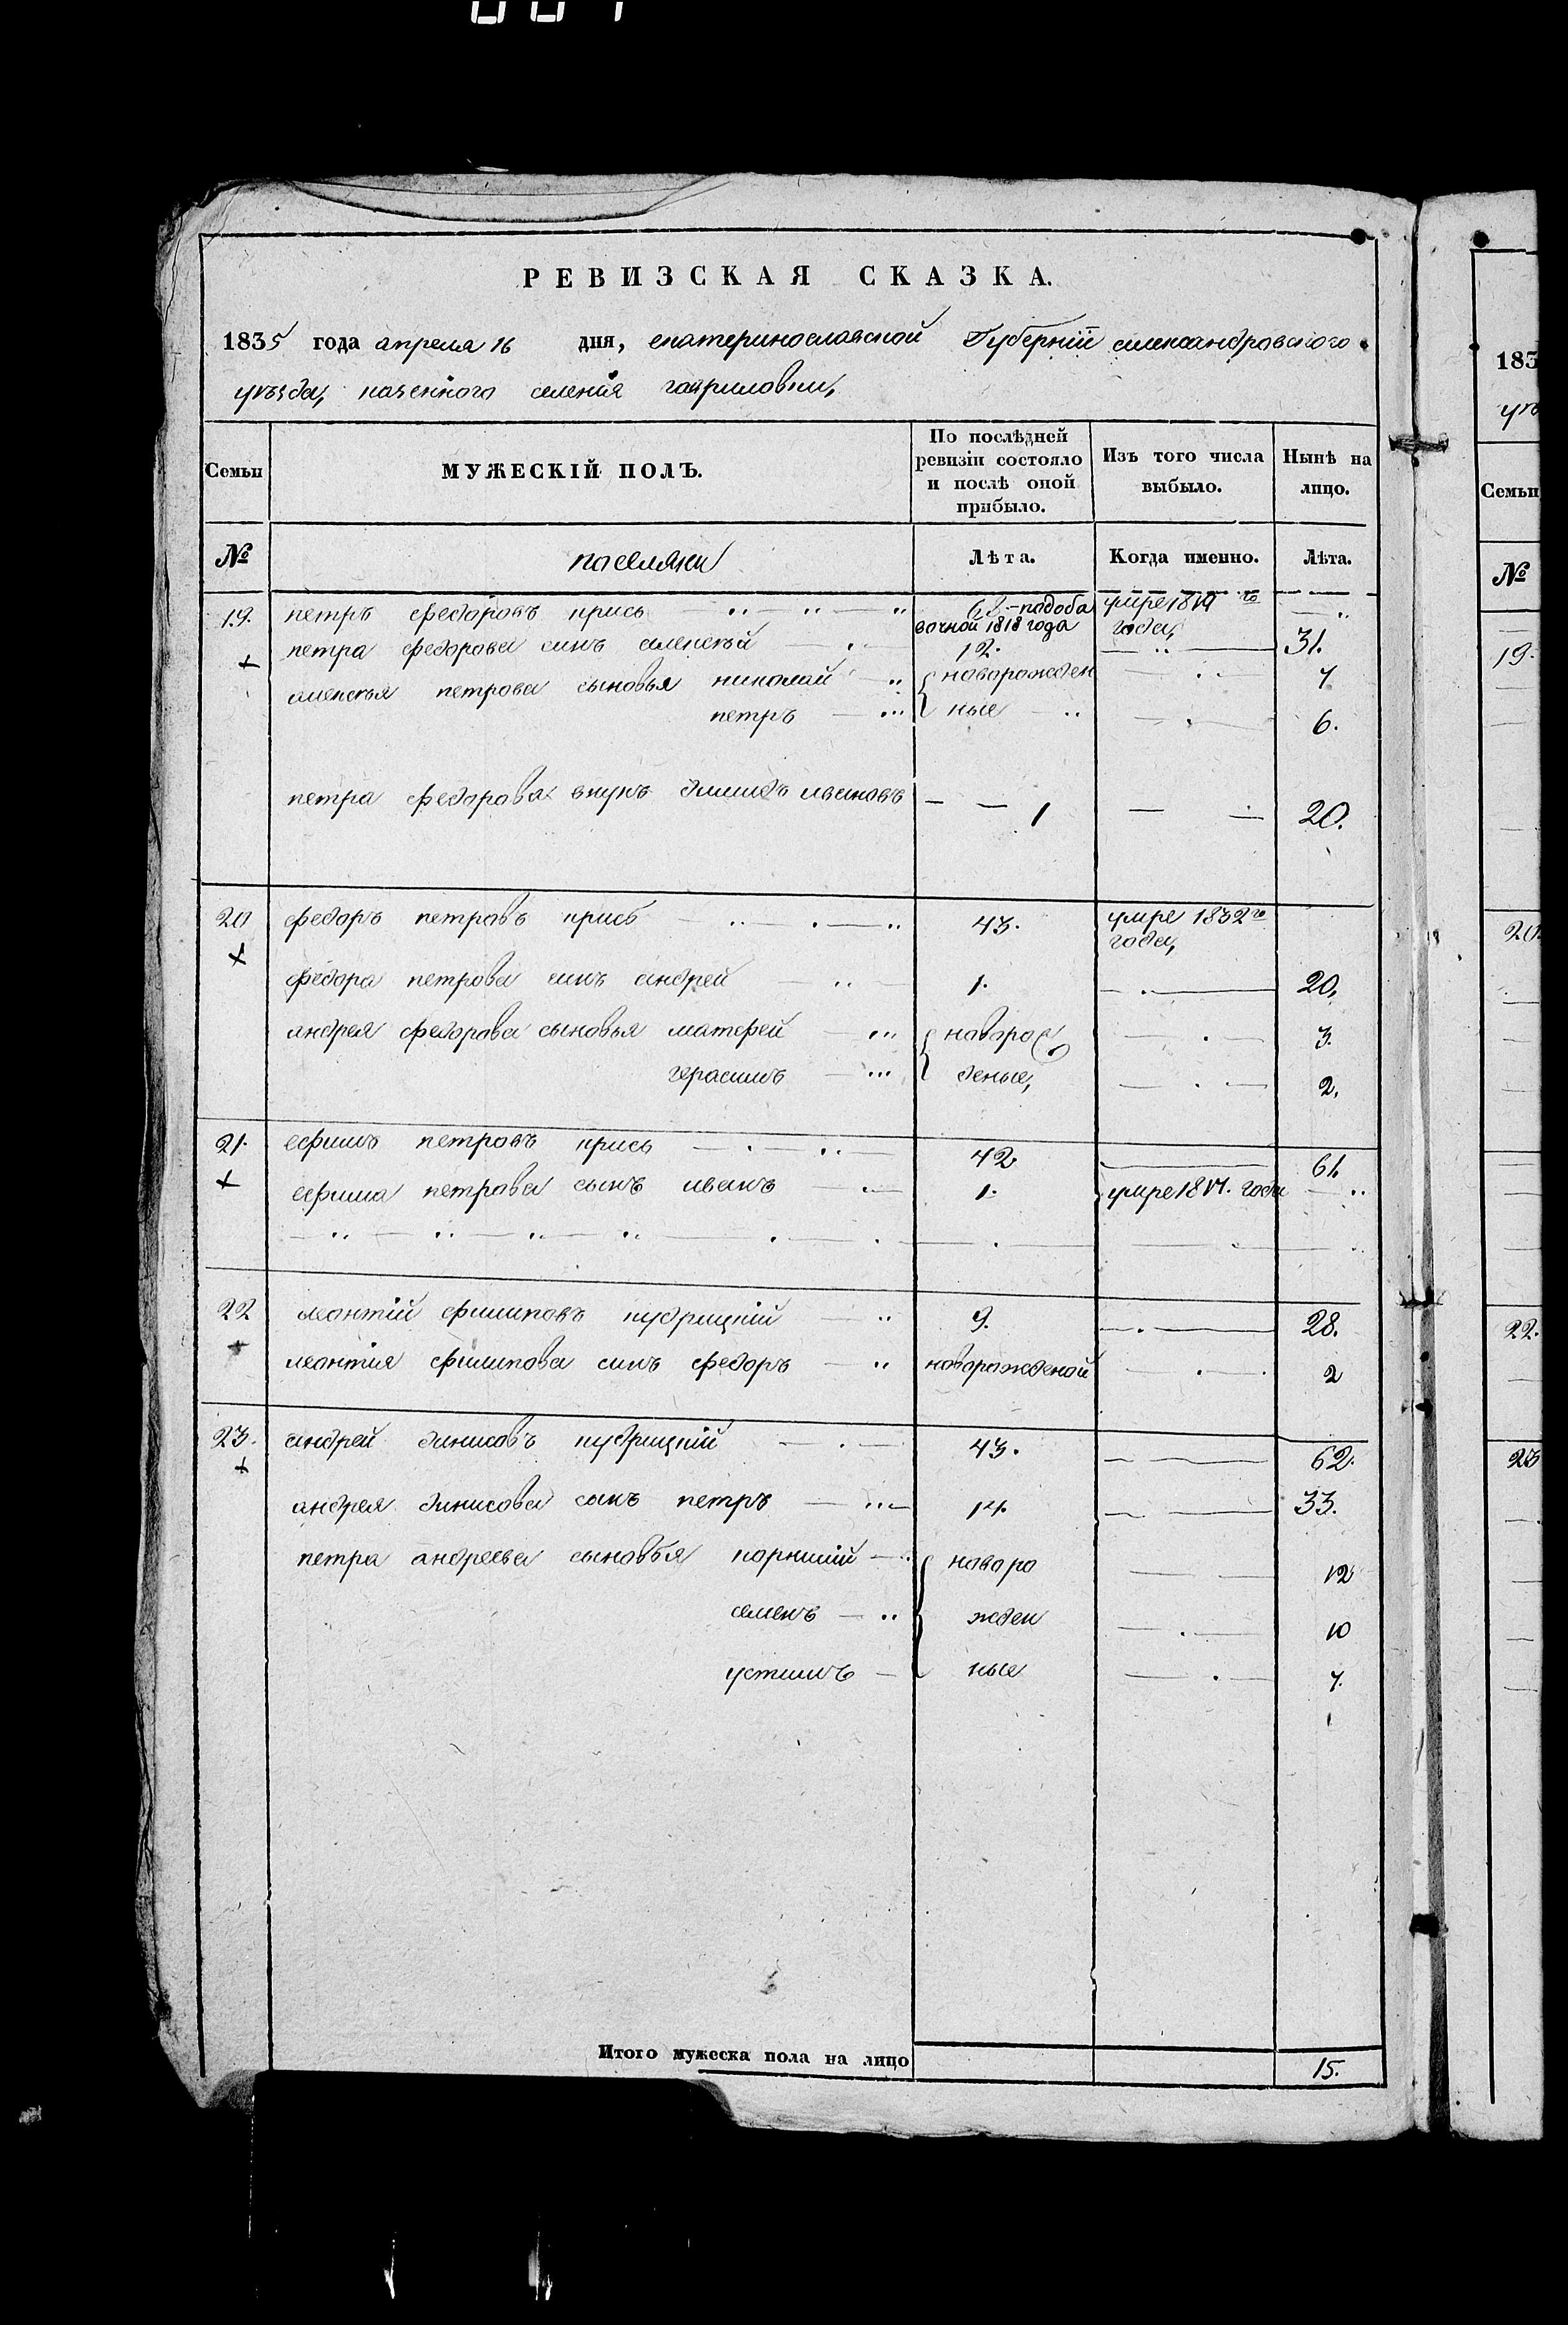 РЕВИЗСКАЯ СКАЗКА.
1835 года апреля 16 дня, екатеринославской Губернїи александровского
уѣзда, казенного селенїя гавриловки,
Семьи
МУЖЕСКІЙ ПОЛЪ.
По послѣдней ревизіи состояло и послѣ оной прибыло.
Изъ того числа выбыло.
Нынѣ на лицо.
№ поселяни Лѣта. Когда именно. Лѣта.
19. петръ федоровъ крись 63.-подоба умре 1819 го
вочной 1818 года года,
петра федорова синъ алексѣй 12. 31.
алексѣя петрова сыновья николай новорожден 7
петръ ные 6.
петра федорова внукъ димидъ ивановъ 1 20.
20 федоръ петровъ крисъ 43. умре 1832 го
года,
федора петрова синъ андрей 1. 20.
андрея федорова сыновья матфей новорож 3.
герасимъ деные, 2.
21. ефимъ петровъ крись 42 61
ефима петрова сынъ иванъ 1. умре 1817. года
22 леонтїй филиповъ кудрицкїй 9. 28.
леонтия филипова синъ федоръ новорожденой 2
23. андрей динисовъ кудрицкїй 43. 62.
андрея динисова сынъ петръ 14. 33.
петра андреева сыновья корнилїй новоро 12
семенъ жден 10
устимъ ные 7.
Итого мужеска пола на лицо 15.
183
Семьи
№
19.
20
22.
23